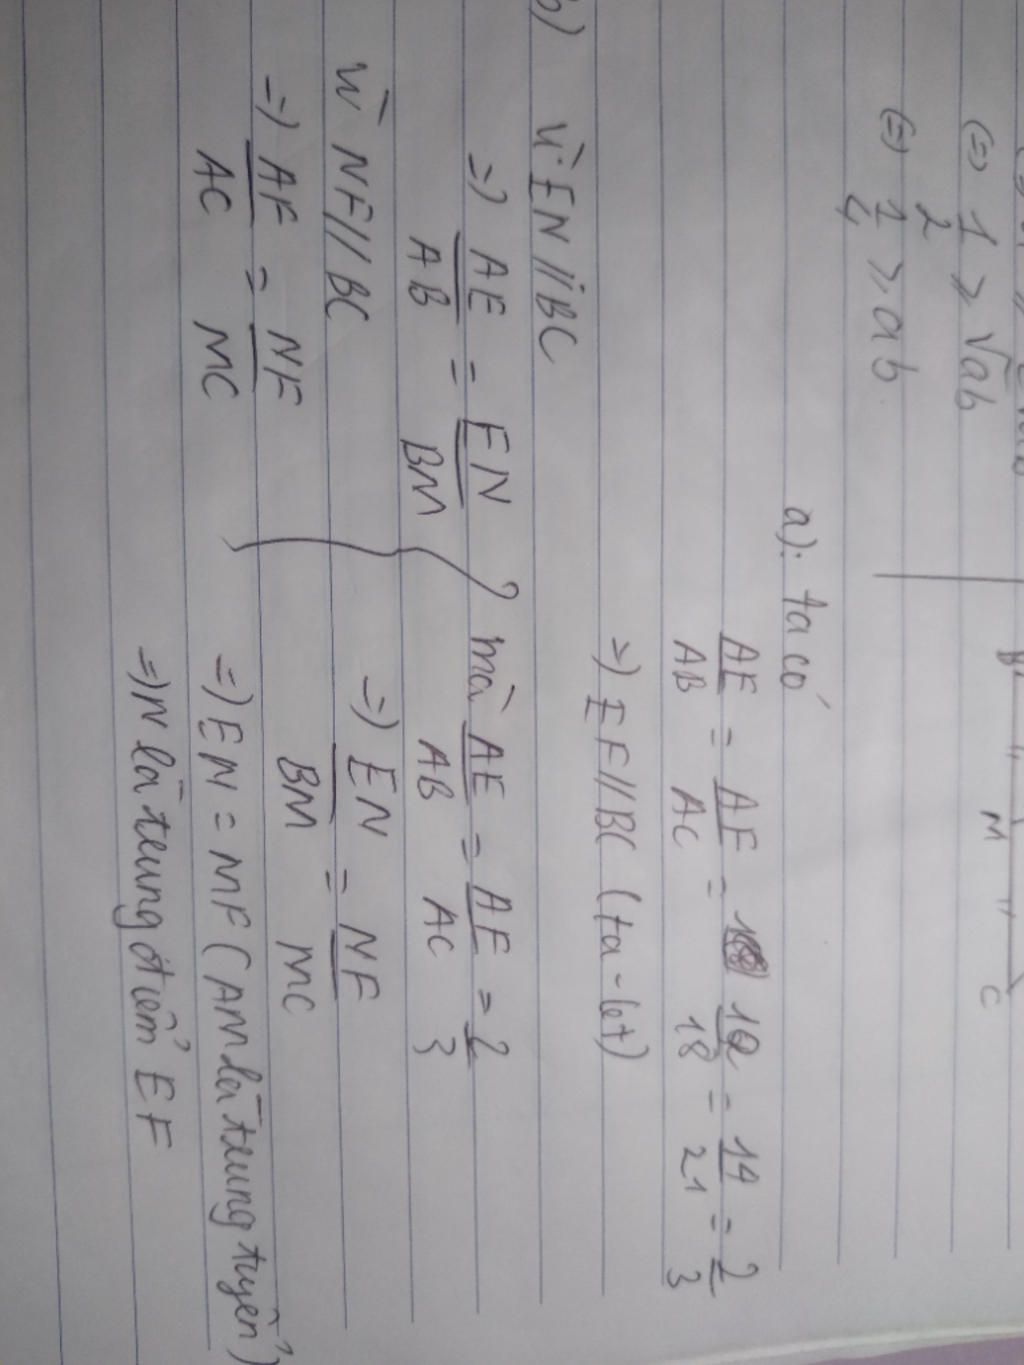 (=) 1/2 ≥ √ab
(=) 1/4 ≥ ab
B M C
a): ta có
AE/AB = AF/AC = 12/18 = 14/21 = 2/3
=) EF//BC (ta-let)
b) Vì EN//BC
=) AE/AB = EN/BM
mà AE/AB = AF/AC = 2/3
Vì NF//BC
=) AF/AC = NF/MC
=) EN/BM = NF/MC
=) EN = MF (AM là trung tuyến)
=) N là trung điểm EF